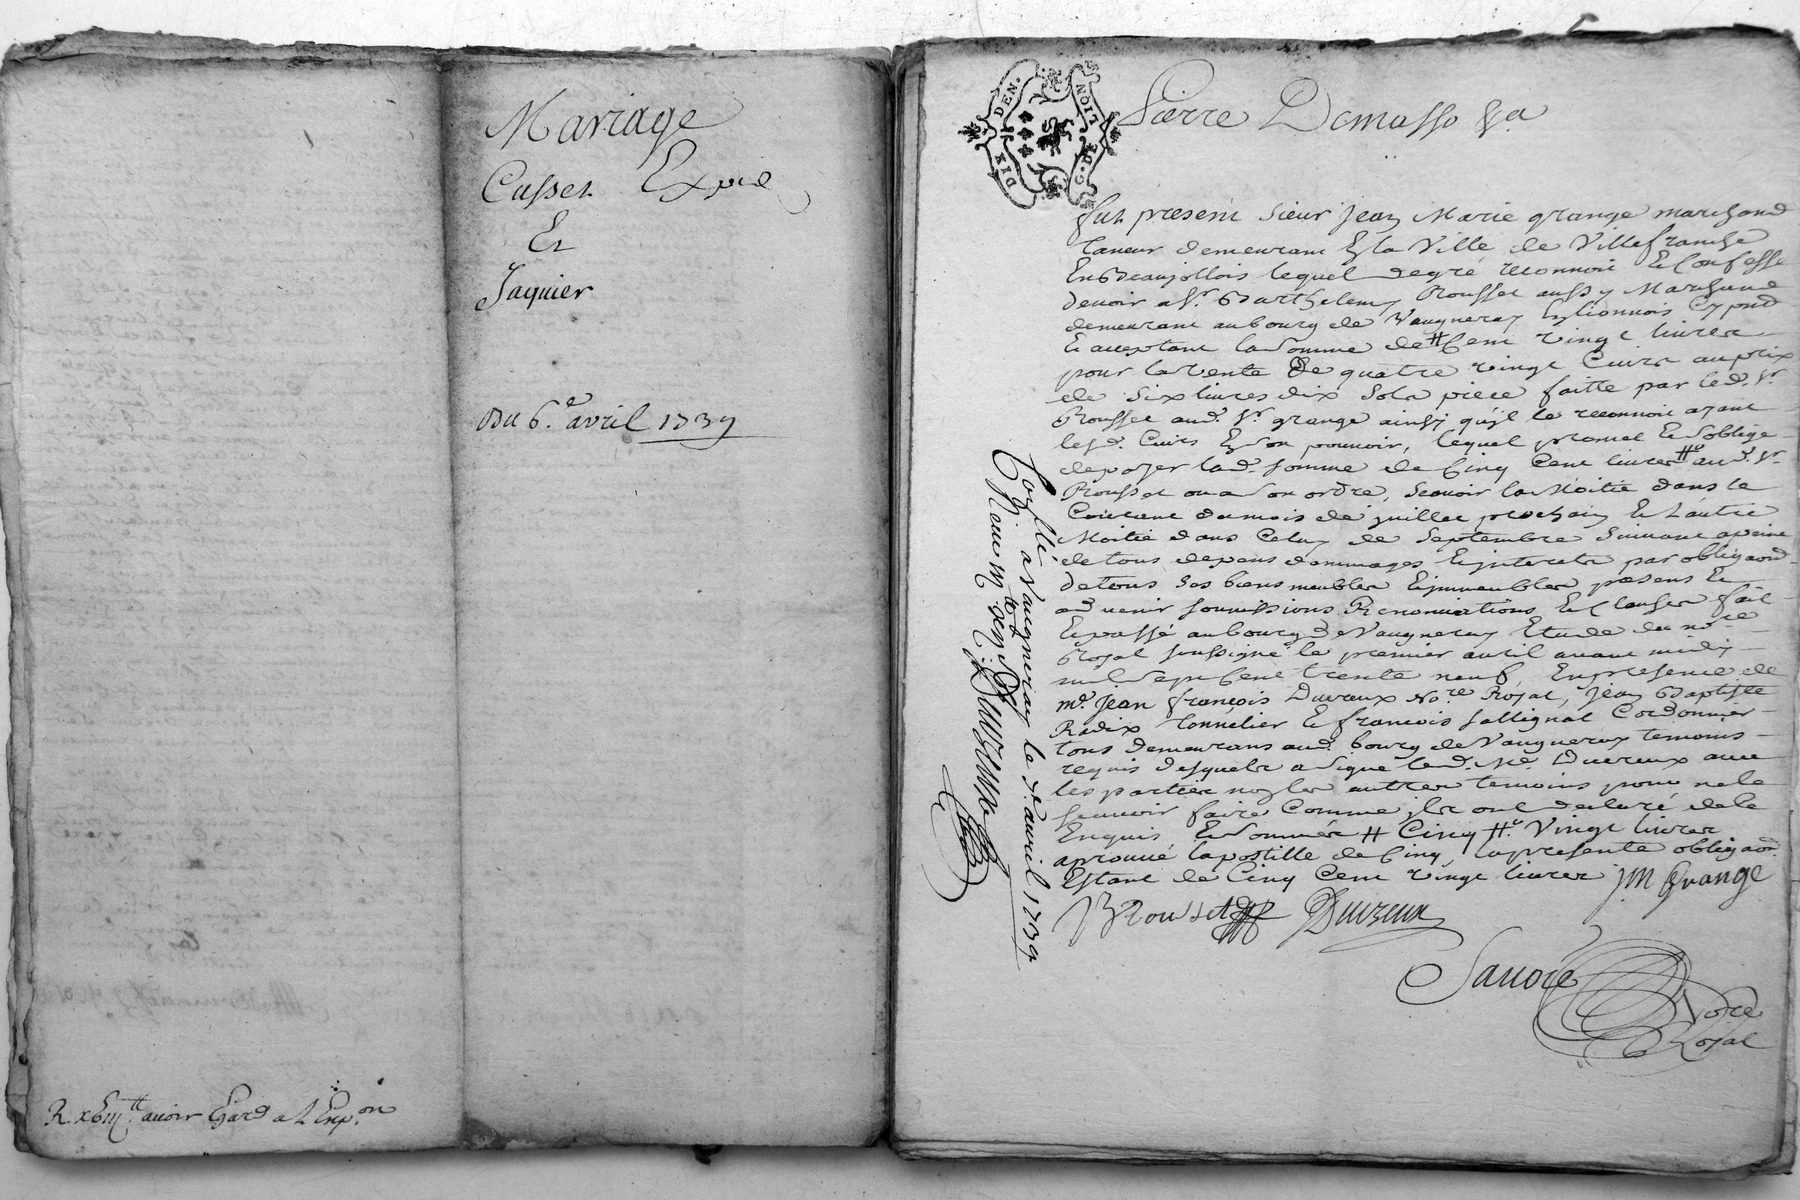 Mariage
Cusset Expié
Et
Jaquier
Du 6.e avril 1739
R. avoir Egard a L'Exp.on
DIX DEN.
G. DE LION
Pierre Demasso
fut present sieur Jean Marie grange marchand
taneur demeurant En la Ville de Villefranche
En Beaujollois lequel de gré reconnoit Et Confesse
devoir a Sr. Barthelemy Rousset aussy Marchand
demeurant au bourg de Vaugneray En lionnois Cy pnt
Et acceptant la somme de # Cent vingt livres
pour la vente de quatre vingt Cuirs au prix
de six livres dix sols piece faitte par led. Sr.
Rousset aud. Sr. grange ainsy qu'jl le reconnoit ayant
lesd. Cuirs En son pouvoir, lequel promet Et s'oblige
de payer lad. somme de Cinq Cent livres # aud. Sr.
Rousset ou a son ordre, sçavoir la Moitié dans le
Courant du mois de juillet prochain Et L'autre
Moitié dans Celuy de Septembre Suivant a peine
de tous depens dommages Et jnterets par obligaon
de tous ses biens meubles Et jmmeubles presens Et
advenir soumissions Renonciations Et Clauses fait
Et passé au bourg de Vaugneray Etude du nore
Royal soussigné le premier avril avant midy
mil sept Cent trente neuf, En presence de
me. Jean françois Duvreux No.re Royal, Jean Baptiste
Radix tonnelier Et françois sallignat Cordonnier
tous demeurans aud. bourg de Vaugneray temoins
requis desquels a signé led. Me. Duvreux avec
les parties non les autres temoins pour ne le
sçavoir faire Comme jls ont declaré de ce
Enquis Et sommés # Cinq #. Vingt livres
aprouvé l'apostille de Cinq, la presente obligaon
Estant de Cinq Cent vingt livres J M Grange
Rousset Duvreux
Savoie
Nore
Royal
Conllé a Vaugneray le 2e avril 1739
Duvreux